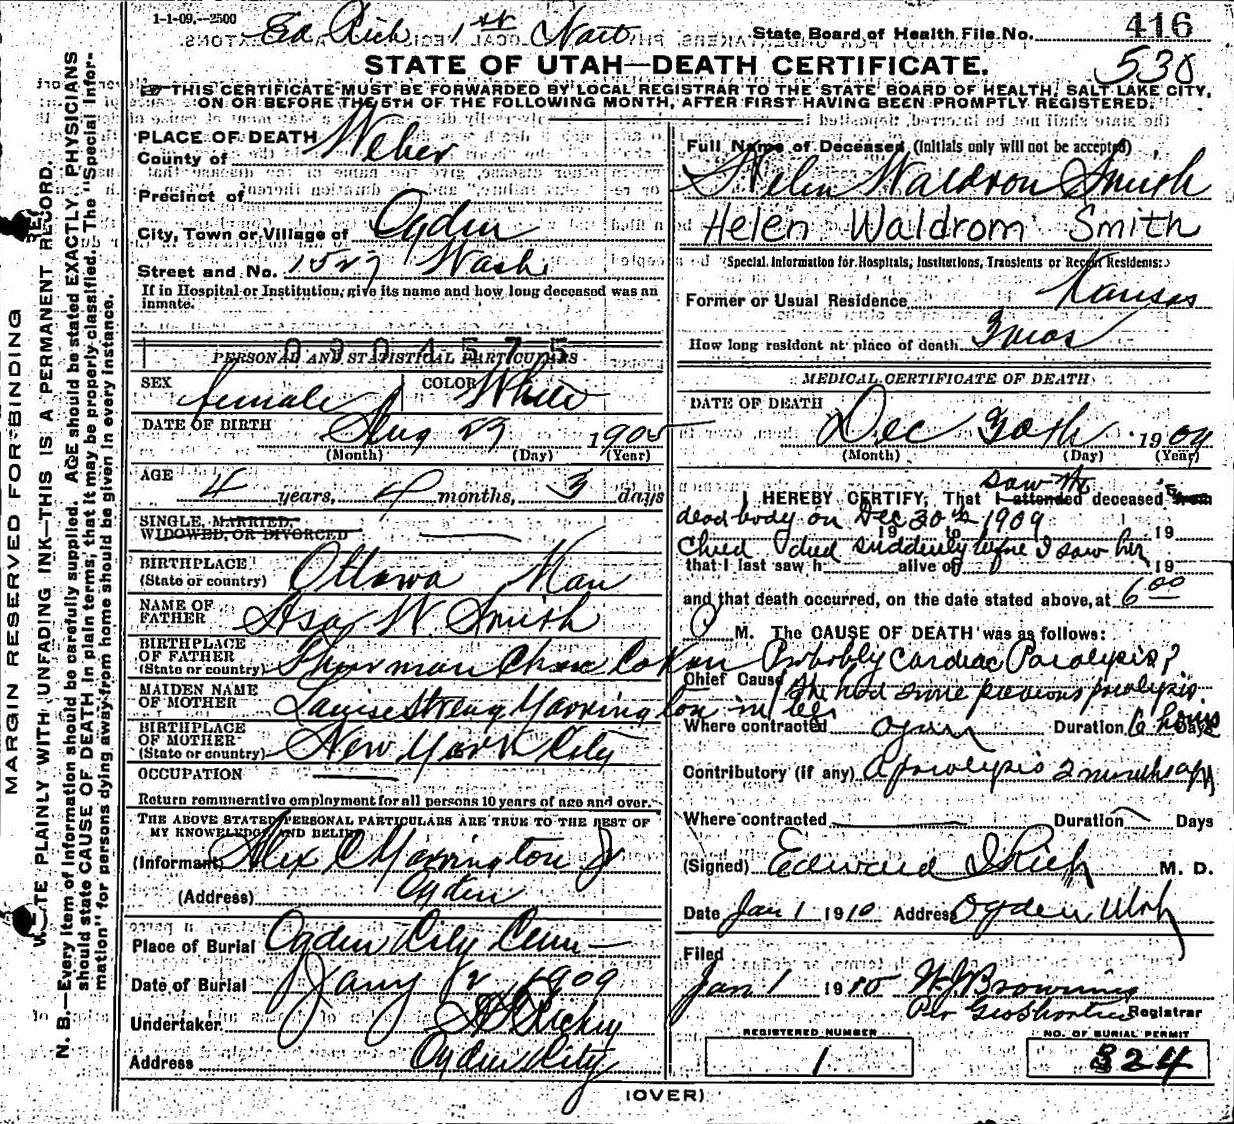 1-1-09,--2500
Ed Rich 1st Natl
State Board of Health File No. 416
530
STATE OF UTAH—DEATH CERTIFICATE.
THIS CERTIFICATE MUST BE FORWARDED BY LOCAL REGISTRAR TO THE STATE BOARD OF HEALTH, SALT LAKE CITY,
ON OR BEFORE THE 5TH OF THE FOLLOWING MONTH, AFTER FIRST HAVING BEEN PROMPTLY REGISTERED.
MARGIN RESERVED FOR BINDING
WRITE PLAINLY WITH UNFADING INK—THIS IS A PERMANENT RECORD.
N. B.—Every item of information should be carefully supplied. AGE should be stated EXACTLY. PHYSICIANS
should state CAUSE OF DEATH in plain terms, that it may be properly classified. The "Special Infor-
mation" for persons dying away from home should be given in every instance.
PLACE OF DEATH
County of Weber
Precinct of
City, Town or Village of Ogden
Street and No. 1527 Wash
If in Hospital or Institution, give its name and how long deceased was an
inmate.
0904575
PERSONAL AND STATISTICAL PARTICULARS
SEX female COLOR White
DATE OF BIRTH Aug 29 1905
(Month) (Day) (Year)
AGE 4 years, 4 months, 3 days
SINGLE, MARRIED,
WIDOWED, OR DIVORCED
BIRTHPLACE
(State or country) Ottawa Kan
NAME OF
FATHER Asa W Smith
BIRTHPLACE
OF FATHER
(State or country) Co Kan
MAIDEN NAME
OF MOTHER Louise Strong Yarrington
BIRTHPLACE
OF MOTHER
(State or country) New York City
OCCUPATION
Return remunerative employment for all persons 10 years of age and over.
THE ABOVE STATED PERSONAL PARTICULARS ARE TRUE TO THE BEST OF
MY KNOWLEDGE AND BELIEF
(Informant) Alex C Yarrington Jr
(Address) Ogden
Place of Burial Ogden City Cem
Date of Burial Jany 2, 1909
Undertaker
Address Ogden City
Full Name of Deceased (Initials only will not be accepted)
Helen Waldron Smith
Helen Waldrom Smith
Special Information for Hospitals, Institutions, Transients or Recent Residents:
Former or Usual Residence Kansas
How long resident at place of death 3 mos
MEDICAL CERTIFICATE OF DEATH
DATE OF DEATH
Dec 30th 1909
(Month) (Day) (Year)
saw the
I HEREBY CERTIFY, That I attended deceased from
dead body on Dec 30th 1909
19 to 19
Child died suddenly before I saw her
that I last saw h alive on 19
and that death occurred, on the date stated above, at 6 00
P M. The CAUSE OF DEATH was as follows:
Probably Cardiac Paralysis?
Chief Cause She had some previous paralysis
in leg
Where contracted Ogden Duration 6 hours Days
Contributory (if any) A paralysis 2 months ago
Where contracted Duration Days
(Signed) Edward I Rich M. D.
Date Jan 1 1910 Address Ogden Utah
Filed
Jan 1 1910 W J Browning
Per Geo Shorten Registrar
REGISTERED NUMBER
1
NO. OF BURIAL PERMIT
324
(OVER)